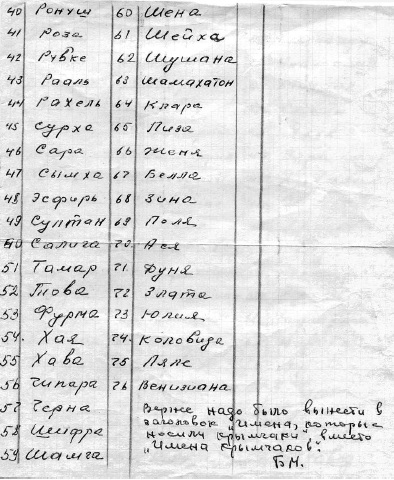 40 Ронуш 60 Шена
41 Роза 61 Шейха
42 Рувке 62 Шушана
43 Рааль 63 Шамахатон
44 Рахель 64 Клара
45 Сурха 65 Лиза
46 Сара 66 Женя
47 Сымха 67 Белла
48 Эсфирь 68 Зина
49 Султан 69 Поля
50 Салига 70. Ася
51 Тамар 71. Дуня
52 Това 72 Злата
53 Фурма 73 Юлия
54. Хая 74. Коловида
55 Хава 75 Ляле
56 Чипара 76 Венизиана
57 Черна Вернее надо было вынести в
заголовок „Имена, которые
58 Шифра носили крымчаки", вместо
59 Шамга „Имена крымчаков".
Б.М.